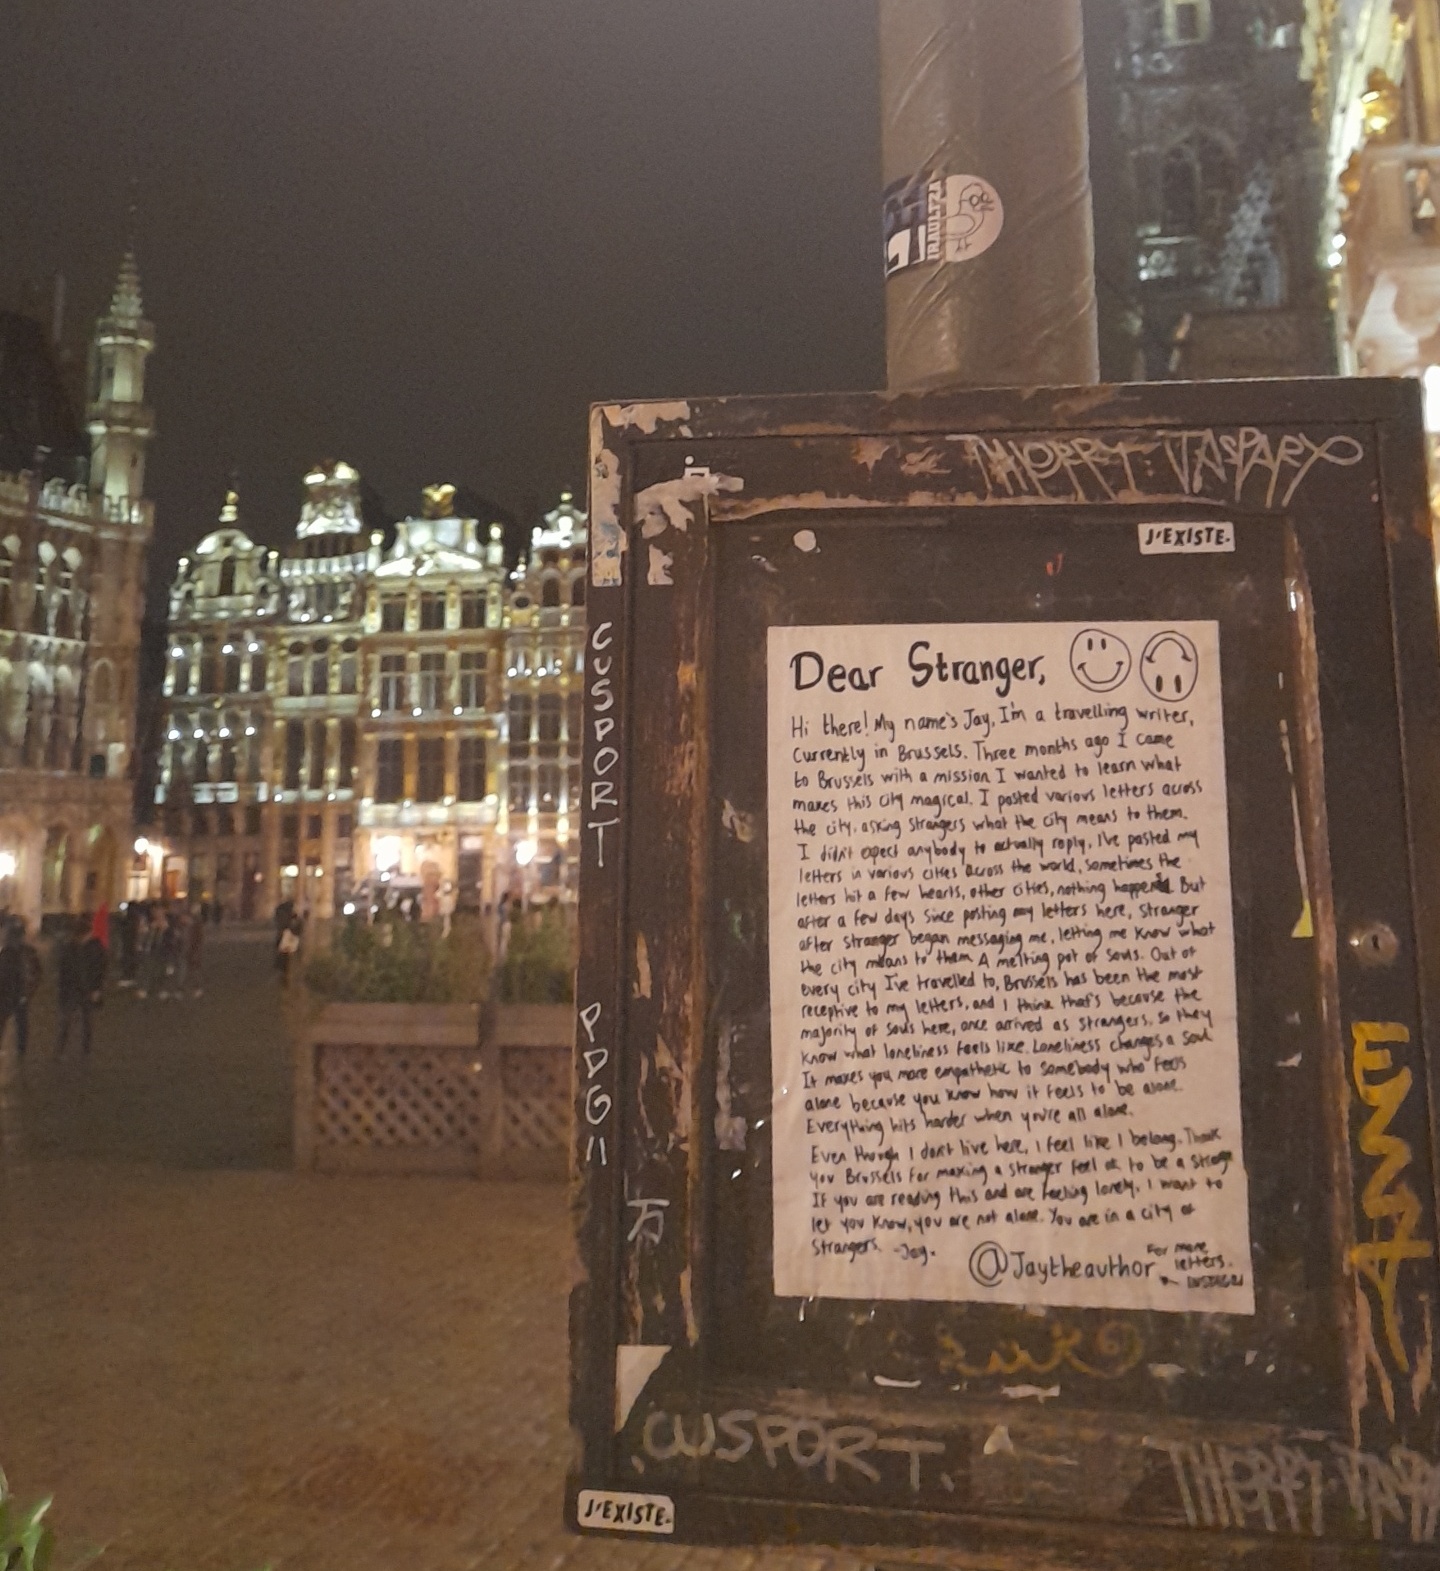 IRAULTZA
THIERRY JASPARY
J'EXISTE.
CUSPORT
PDG
Dear Stranger,
Hi there! My name's Jay, I'm a travelling writer,
Currently in Brussels. Three months ago I came
to Brussels with a mission I wanted to learn what
makes this city magical. I posted various letters across
the city, asking strangers what the city means to them.
I didn't expect anybody to actually reply, I've posted my
letters in various cities across the world, sometimes the
letters hit a few hearts, other cities, nothing happened. But
after a few days since posting my letters here, stranger
after stranger began messaging me, letting me know what
the city means to them. A melting pot of souls. Out of
every city I've travelled to, Brussels has been the most
receptive to my letters, and I think that's because the
majority of souls here, once arrived as strangers. So they
know what loneliness feels like. Loneliness changes a soul
It makes you more empathetic to somebody who feels
alone because you know how it feels to be alone.
Everything hits harder when you're all alone.
Even though I don't live here, I feel like I belong. Thank
you Brussels for making a stranger feel ok to be a
If you are reading this and are feeling lonely. I want to
let you know, you are not alone. You are in a city of
Strangers. -Jay.
@Jaytheauthor
For more
letters.
CUSPORT.
J'EXISTE.